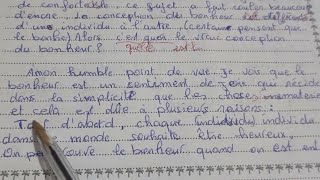 de confortable, ce sujet a fait couler beaucoup
d'encre. La conception du bonheur est
d'un individu à l'autre (certains pensent que
le bonheur) Alors c'est quoi la vraie conception
du bonheur ?
A mon humble point de vue Je vois que le
bonheur est un sentiment de qui réside
dans la simplicité que les choses immateriaux
et cela est dûe à plusieurs raisons :
Tout d'abord, chaque individu
dans le monde souhaite être heureux.
On peut trouve le bonheur quand on est en